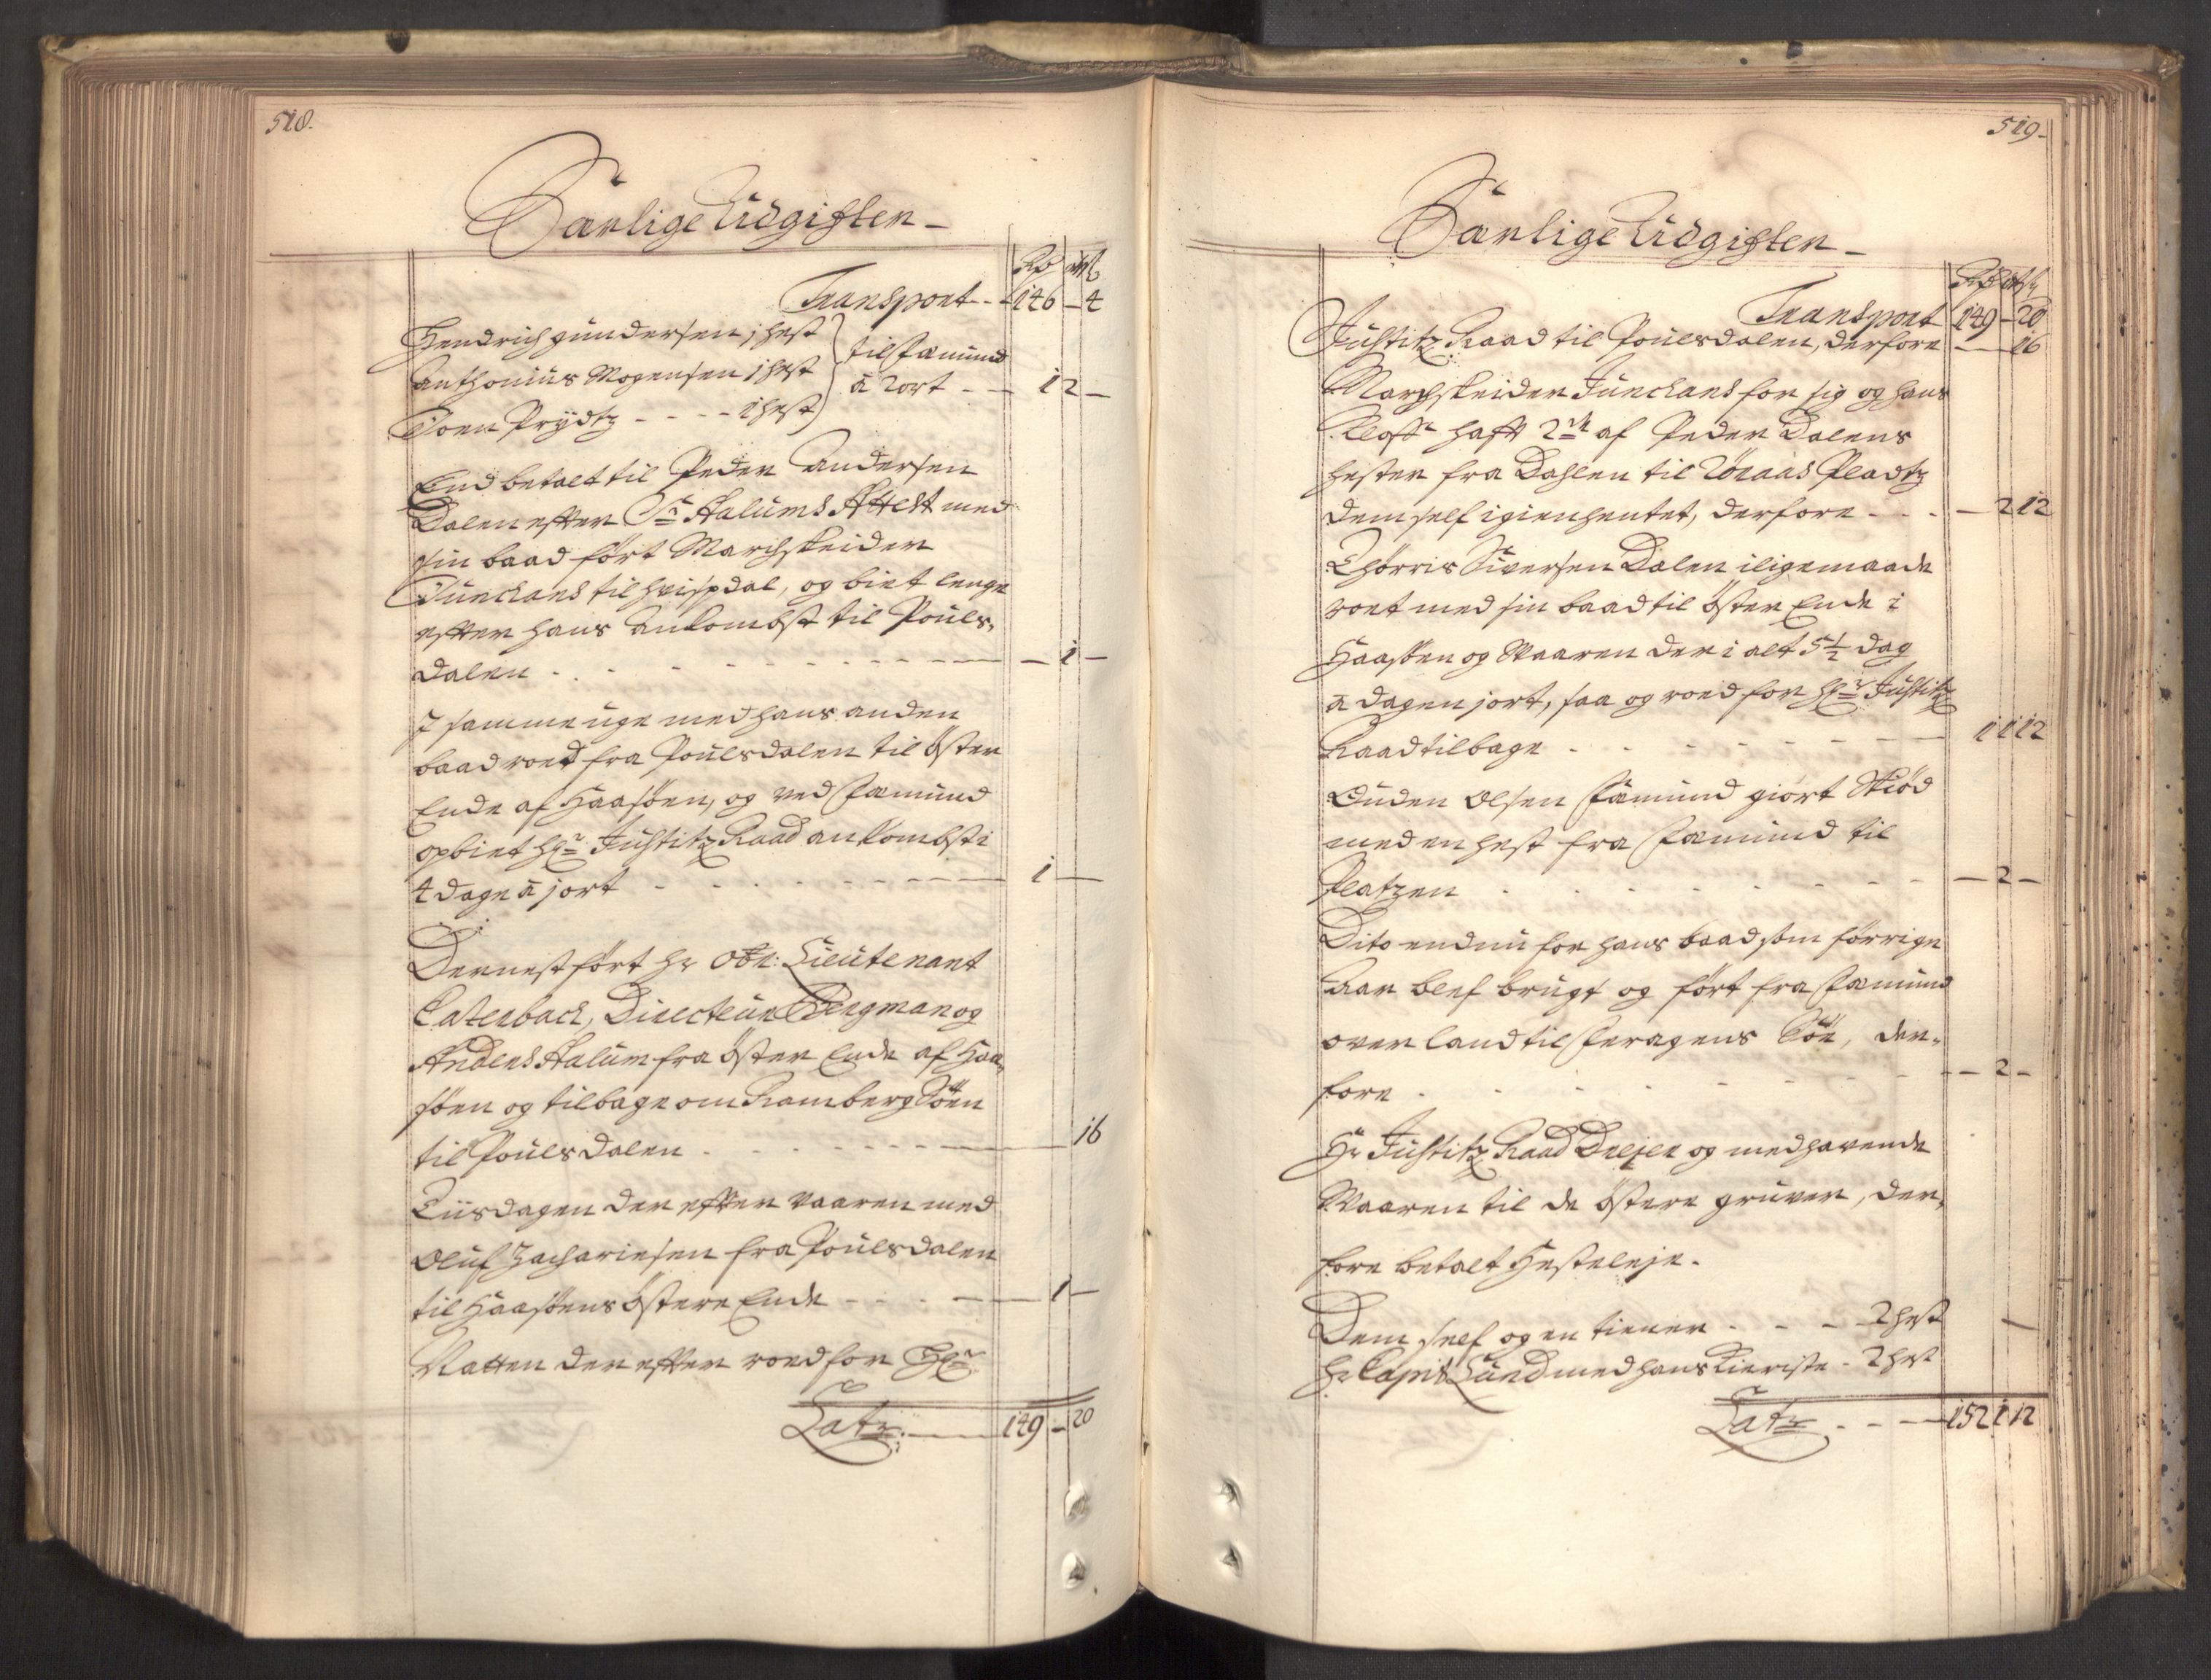 518.
Særlige Udgifter
Rd
Transport - - 146 - 4
Hendrich Gundersen 1 hest
Anthonius Mogensen 1 hest
Joen Prydtz - - - - 1 hest
til Fæmund
â 2 ort - - 1 2 -
End betalt til Peder Andersen
Dalen efter Sr Aalums Attest med
sin baad ført Marchskeider
Junchans til hvispdal, og biet lenge
efter hans ankombst til Pouls,
dalen - - - - 1 -
I samme uge med hans anden
baad roed fra Poulsdalen til Øster
Ende af Haasøen, og ved Fæmund
opbiet Hr Justitz Raad ankombst i
4 dage â 1 ort - - - 1 -
Dernest ført Hr Obr: Lieutenant
Catenbach, Directeur Bergman og
Anders Aalum fra Øster Ende af Haa,
søen og tilbage om Ramberg Søen
til Poulsdalen - - - 16
Tiisdagen der efter vaaren med
Oluf Zachariesen fra Poulsdalen
til Haasøens østere Ende - - - 1 -
Natten der efter roed for Hr
Latr. 149 - 20
519.
Særlige Udgifter
Rd
Transport 149 - 20
Justitz Raad til Poulsdalen, derfore - 16
Marchskeider Junchans for sig og hans
haft 2 af Peder Dalens
hester fra Dahlen til Røraas Pladtz
dem self igienhentet, derfore - - - 2 12
Thørris Siversen Dalen iligemaade
roet med sin baad til Øster Ende i
Haasøen og Waaren der i alt 5 1/2 dag
â dagen 1 ort, saa og roed for Hr Justitz
Raad tilbage - - - 1 1 12
Ouden Olsen Fæmund giort Skiød
med en hest fra Fæmund til
Platzen - - - 2 -
Dito endnu for hans baad som forrige
Aar blef brugt og ført fra Fæmund
over land til Feragens Søe, der,
fore - - - 2 -
Hr Justitz Raad Dreyer og medhavende
Waaren til de østere gruver, der,
fore betalt Hesteleje.
Dem self og en tiener - - - 2 hest
Hr Capit Lund med hans - 2 hest
Latr - - - 152 1 12